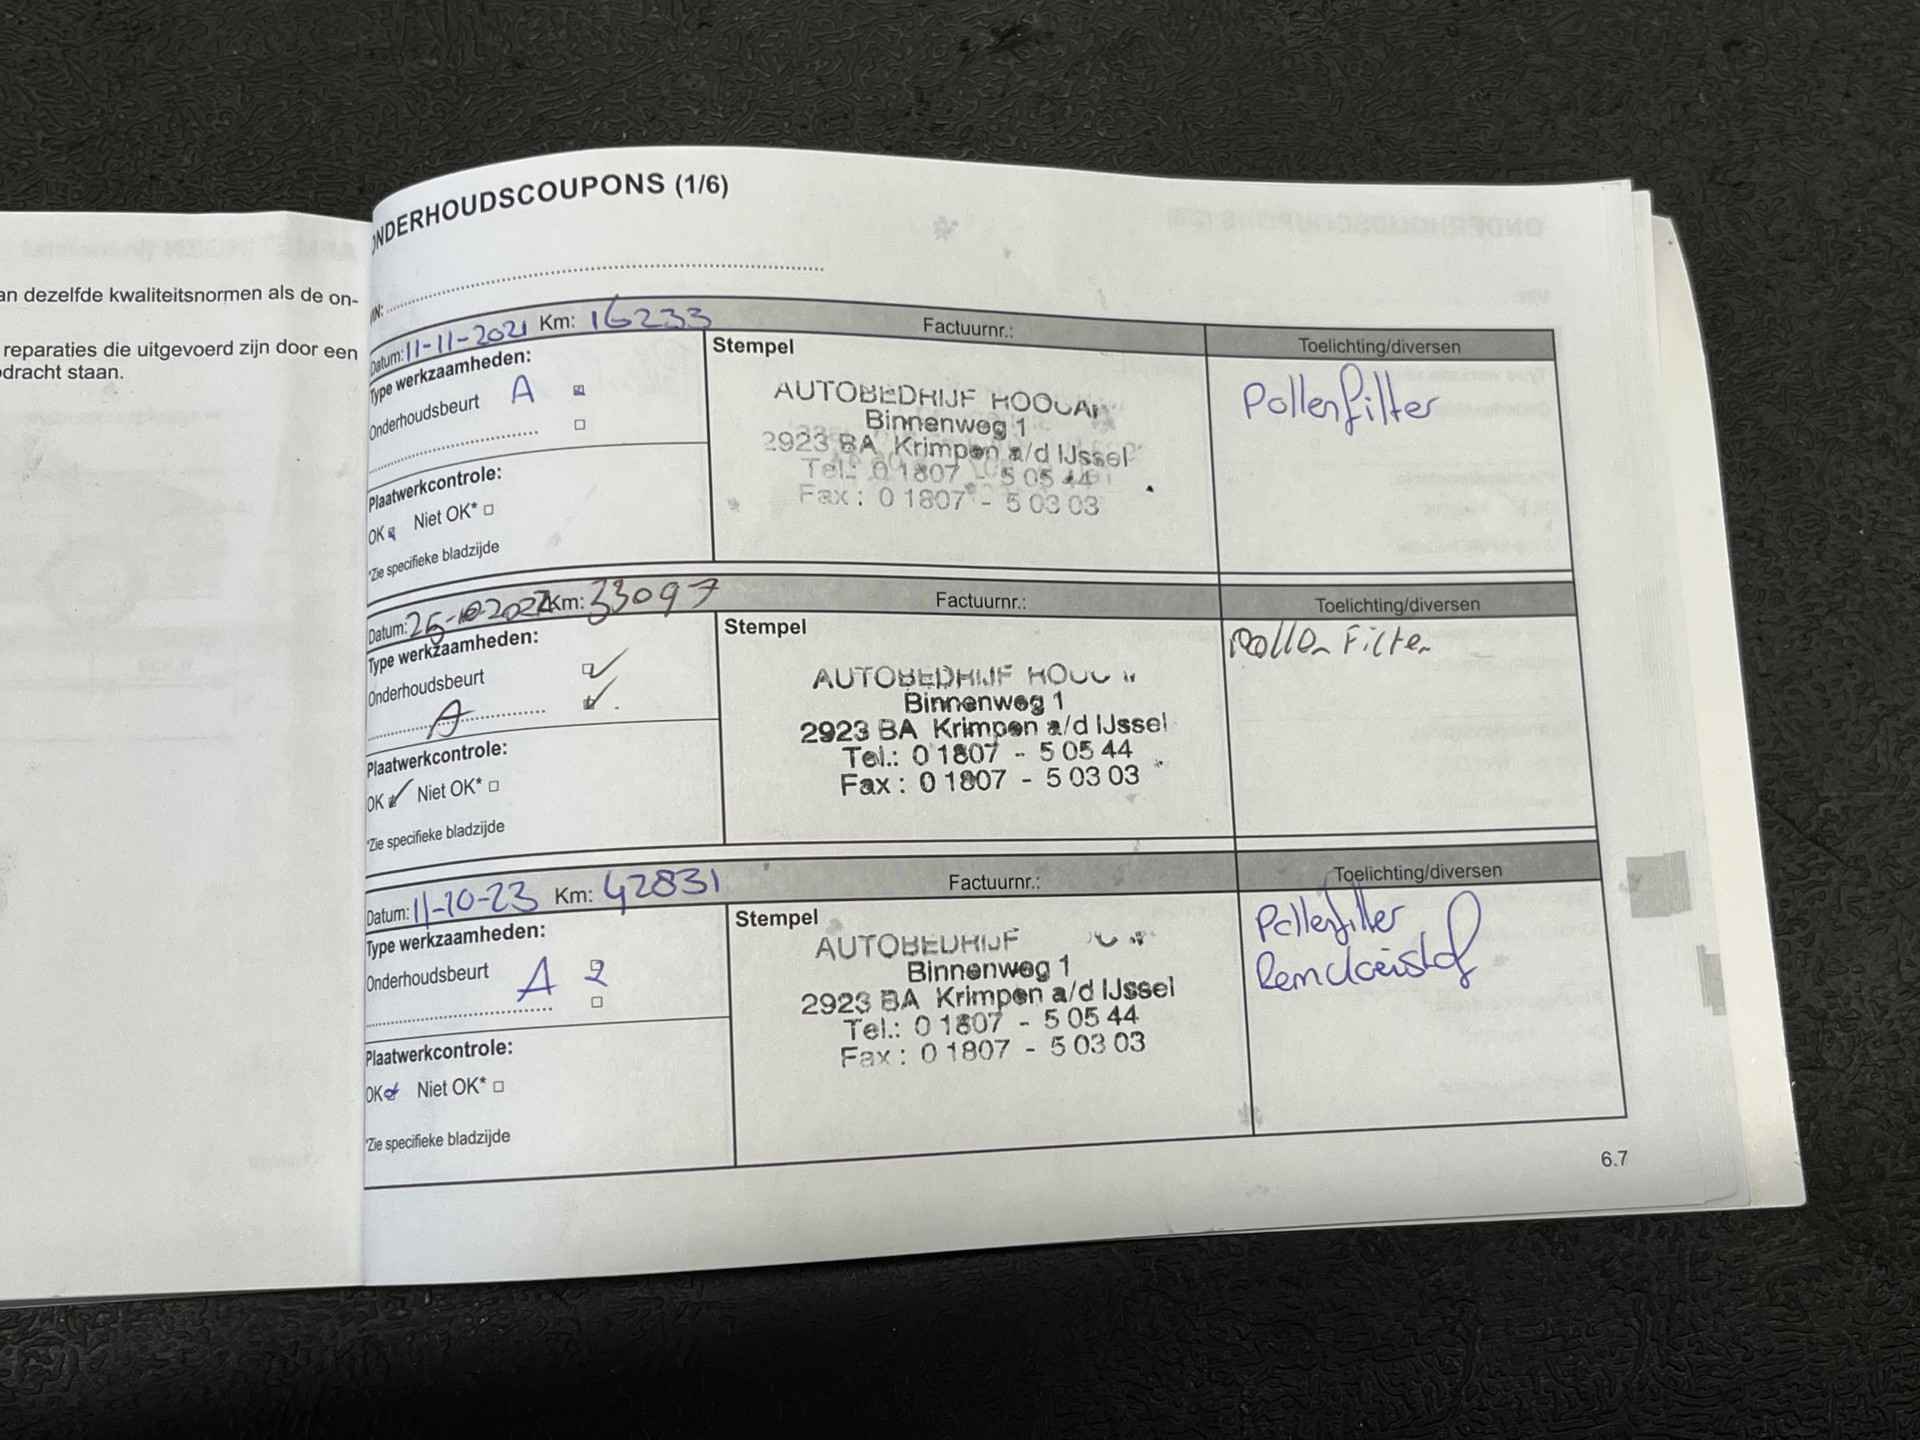 an dezelfde kwaliteitsnormen als de on-
reparaties die uitgevoerd zijn door een
dracht staan.
ONDERHOUDSCOUPONS (1/6)
Datum: 11-11-2021 Km: 16233 Factuurnr.: Toelichting/diversen
Type werkzaamheden:
Onderhoudsbeurt A
Plaatwerkcontrole:
OK Niet OK*
*Zie specifieke bladzijde
Stempel
AUTOBEDRIJF
Binnenweg 1
2923 BA Krimpen a/d IJssel
Tel.: 0 1807 - 5 05 44
Fax : 0 1807 - 5 03 03
Pollenfilter
Datum: Km: 33097 Factuurnr.: Toelichting/diversen
Type werkzaamheden:
Onderhoudsbeurt
A
Plaatwerkcontrole:
OK Niet OK*
*Zie specifieke bladzijde
Stempel
AUTOBEDRIJF
Binnenweg 1
2923 BA Krimpen a/d IJssel
Tel.: 0 1807 - 5 05 44
Fax : 0 1807 - 5 03 03
Pollen Filter
Datum: 11-10-23 Km: 42831 Factuurnr.: Toelichting/diversen
Type werkzaamheden:
Onderhoudsbeurt A
Plaatwerkcontrole:
OK Niet OK*
*Zie specifieke bladzijde
Stempel
AUTOBEDRIJF
Binnenweg 1
2923 BA Krimpen a/d IJssel
Tel.: 0 1807 - 5 05 44
Fax : 0 1807 - 5 03 03
Pollenfilter
Remvloeistof
6.7